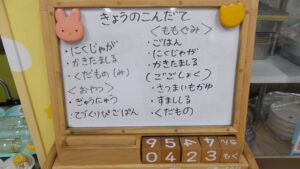 きょうのこんだて
・にくじゃが
・かきたましる
・くだもの(み)
<おやつ>
・ぎゅうにゅう
・てづくりぴざぱん
<ももぐみ>
・ごはん
・にくじゃが
・かきたましる
(ごごしょく)
・さつまいもがゆ
・すましじる
・くだもの
0423もく